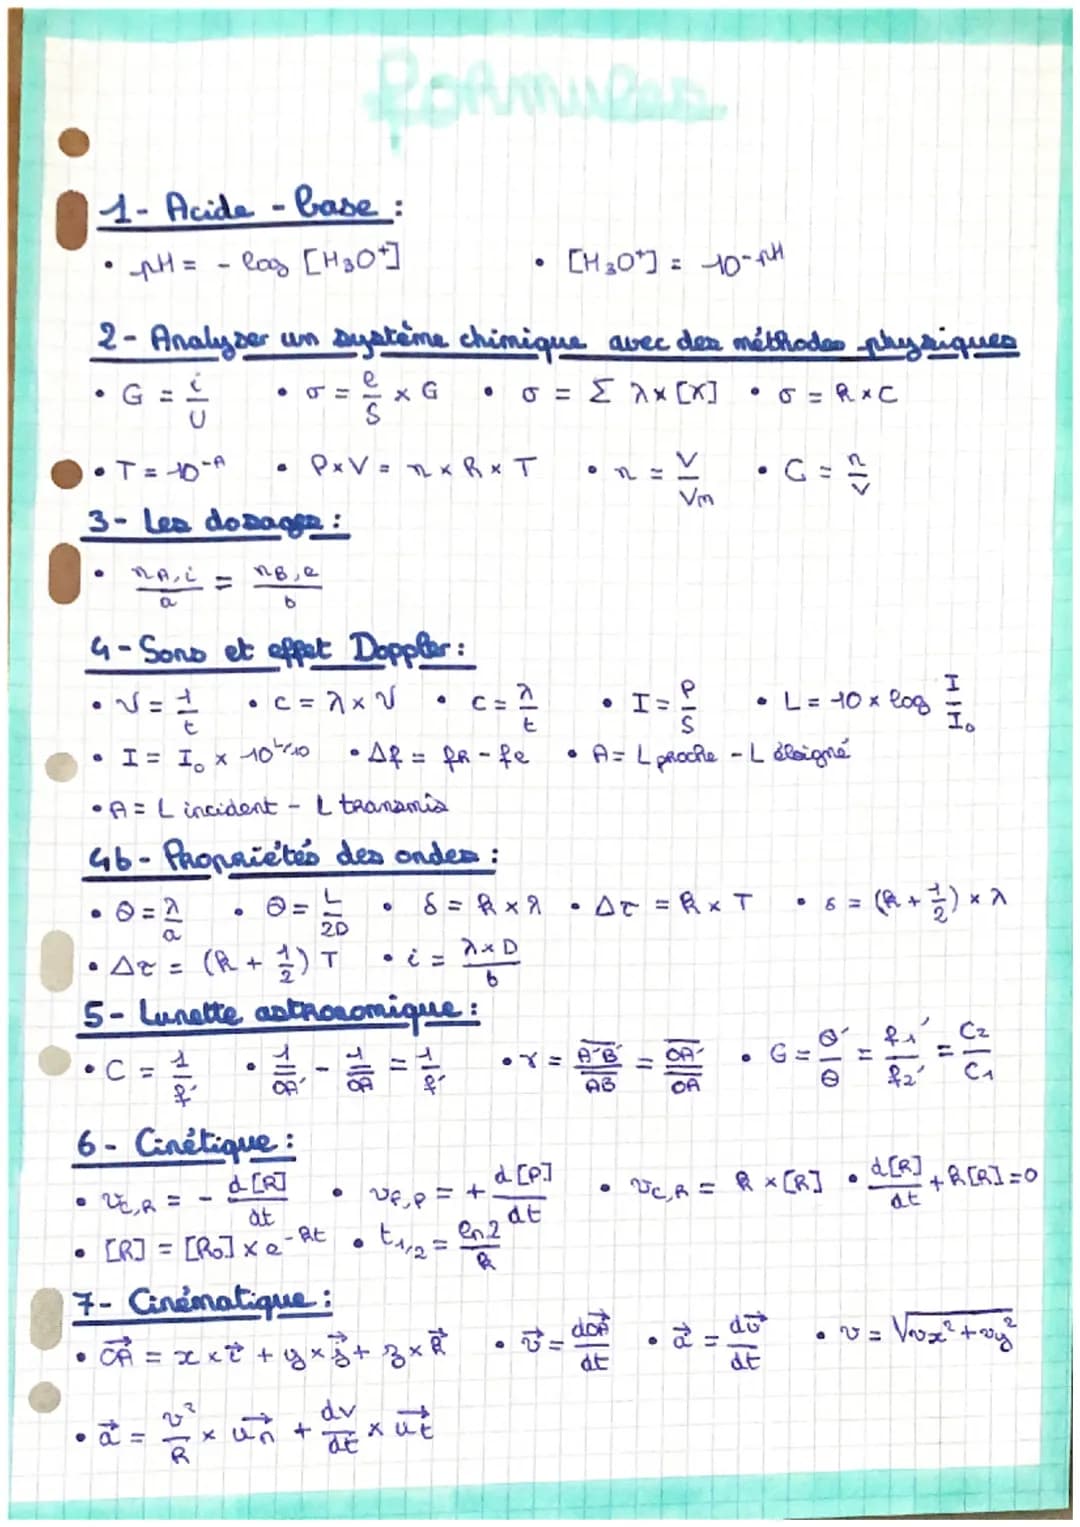 Formules
1- Acide - base :
• pH = - log [H₃O⁺] • [H₃O⁺] = 10^-pH
2- Analyser un système chimique avec des méthodes physiques
• G = i/U • σ = e/S × G • σ = Σ λ × [X] • σ = k × C
• T = 10^-A • P × V = n × R × T • n = V/Vm • C = n/V
3- Les dosages :
• nA,i/a = nB,e/b
4- Sons et effet Doppler :
• ν = 1/t • c = λ × ν • c = λ/t • I = P/S • L = 10 × log I/I₀
• I = I₀ × 10^L/10 • Δf = fR - fe • A = L proche - L éloigné
• A = L incident - L transmis
4b- Propriétés des ondes :
• θ = λ/a • θ = L/2D • δ = k × λ • Δτ = k × T • δ = (k + 1/2) × λ
• Δτ = (k + 1/2) T • i = λ × D/b
5- Lunette astronomique :
• C = 1/f' • 1/OA' - 1/OA = 1/f' • γ = A'B'/AB = OA'/OA • G = θ'/θ = f1'/f2' = C2/C1
6- Cinétique :
• vc,R = - d[R]/dt • vf,P = + d[P]/dt • vc,R = k × [R] • d[R]/dt + k[R] = 0
• [R] = [R₀] × e^-kt • t1/2 = ln2/k
7- Cinématique :
• OA⃗ = x × i⃗ + y × j⃗ + z × k⃗ • v⃗ = dOA⃗/dt • a⃗ = dv⃗/dt • v = √vx² + vy²
• a⃗ = v²/R × un⃗ + dv/dt × ut⃗